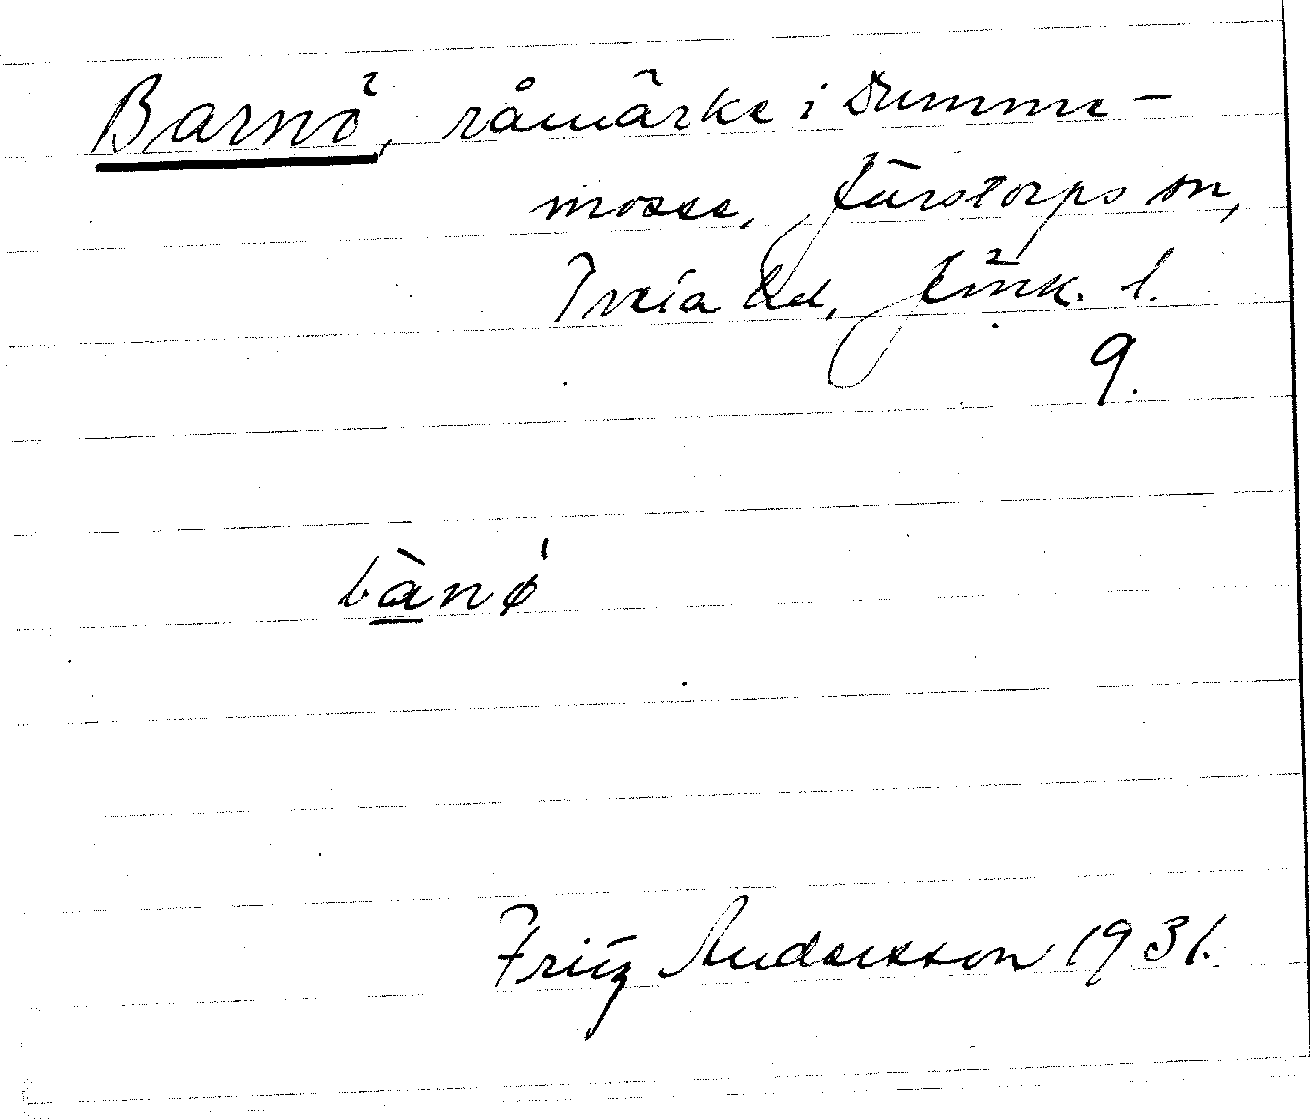 Barnö, råmärke i Dumme-
mosse, Järstorps sn,
Tveta hd, Jönk. l.
9.
bànǿ
Fritz Andersson 1931.